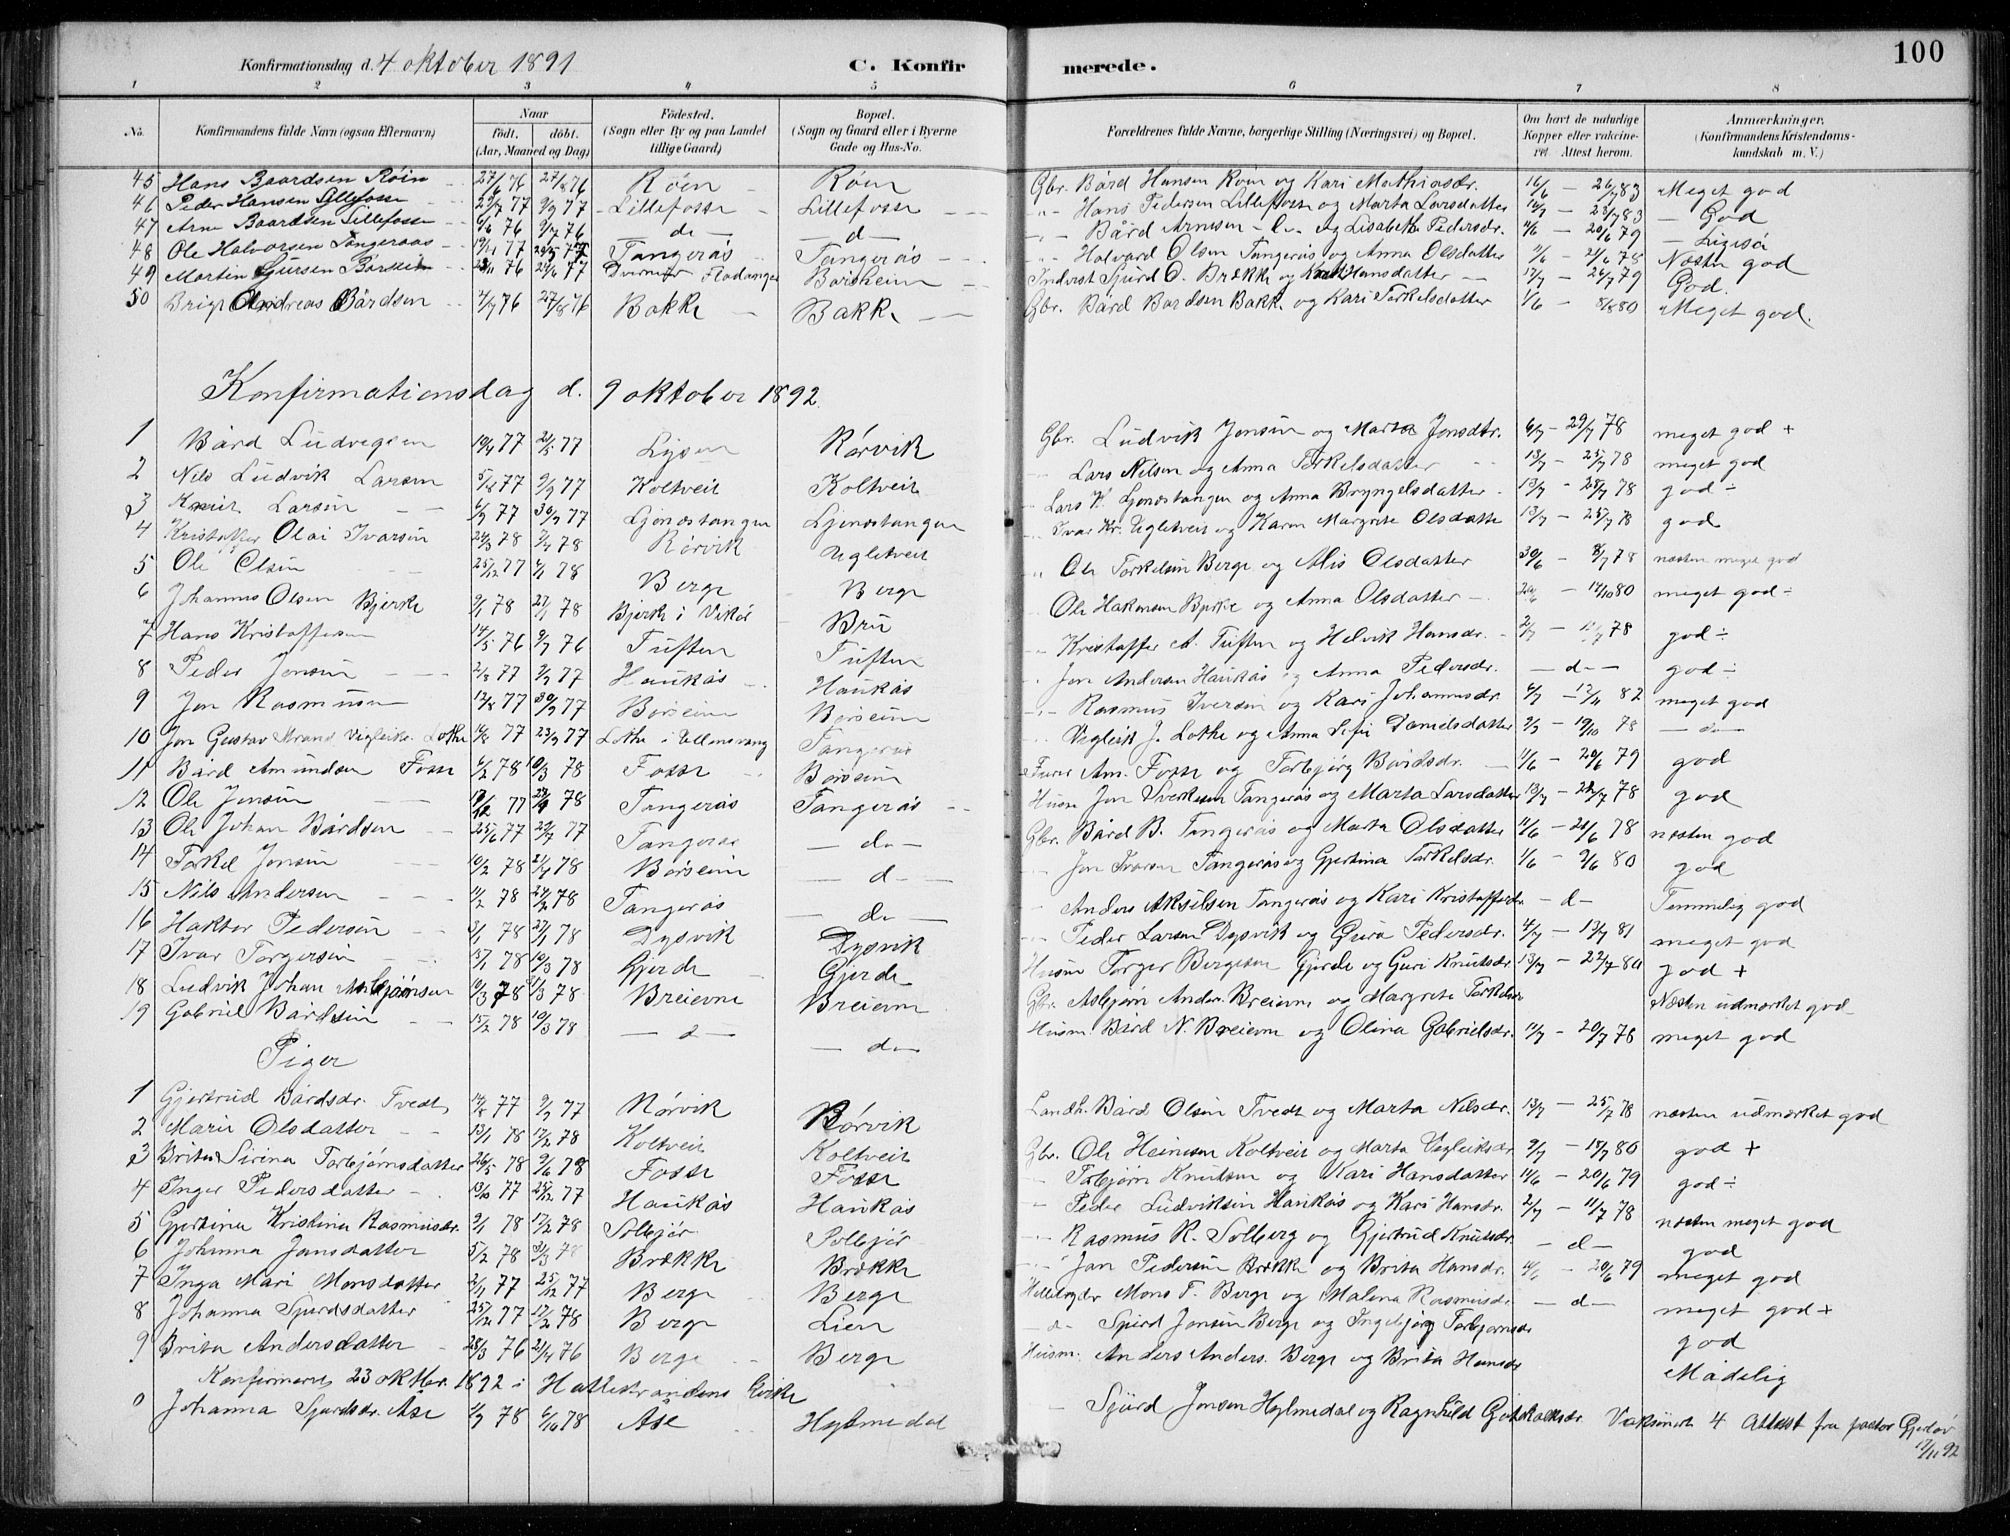 100
Konfirmationsdag d. 4 oktober 1891 C. Konfirmerede.
1 2 3 4 5 6 7 8
No. Konfirmandens fulde Navn (ogsaa Efternavn) Naar født, døbt. (Aar, Maaned og Dag) Födested. (Sogn eller By og paa Landet tillige Gaard) Bopæl. (Sogn og Gaard eller i Byerne Gade og Hus-No. Forældrenes fulde Navne, borgerlige Stilling (Næringsvei) og Bopæl. Om havt de naturlige Kopper eller vakcineret. Attest herom. Anmærkninger. (Konfirmandens Kristendomskundskab m. V.)
45 Hans Baardsen Røin 27/6 76 27/8 76 Røen Røen Gbr. Bård Hansen Røen og Kari Mathiasdr. 16/6 — 26/7 83 Meget god
46 Peder Hansen Lillefosse 29/7 77 9/9 77 Lillefosse Lillefosse " Hans Pedersen Lillefosse og Marta Larsdatter — 28/7 83 — God
47 Arne Baardsen Lillefosse 76 76 — do — — d — " Bård Arnesen — og Lisabeth Pedersdr. 4/6 — 20/6 79 — Ligeså
48 Ole Halvorsen Tangeraas 77 77 Tangerås Tangerås " Halvard Olsen Tangerås og Anna Olsdatter 11/6 — 21/6 78 Næsten god
49 Martin Sjursen Börsheim 76 77 Fladanger Borsheim Inderst Sjurd O. Brække og Hansdatter 17/7 — 26/7 79 God.
50 Andreas Bårdsen 4/7 76 27/8 76 Bakke Bakke Gbr. Bård Bardsen Bakke og Kari Torkelsdatter 1/6 — 8/8 80 Meget god.
Konfirmationsdag d. 9 oktober 1892.
1 Bård Ludvigsen 19/4 77 21/5 77 Lysen Rørvik Gbr. Ludvik Jensen og Marta Jensdtr. 6/7 — 29/7 78 meget god +
2 Nils Ludvik Larsen 77 9/9 77 Koltveit Koltveit " Lars Nilsen og Anna Torkelsdatter 13/7 — 25/7 78 meget god
3 Knut Larsen 77 30/9 77 Ljonestangen Ljonestangen " Lars K. Ljonestangen og Anna Bryngelsdatter 13/7 — 25/7 78 god ÷
4 Kristoffer Olai Ivarsen 24/3 78 78 Rørvik Ugletveit " Ivar Kr. Ugletveit og Karen Margrete Olsdatte 13/7 — 25/7 78 god
5 Ole Olsen 25/12 77 78 Berge Berge " Ole Torkelsen Berge og Alis Olsdatter 30/6 — 8/7 78 næsten meget god
6 Johannes Olsen Bjerke 9/1 78 27/1 78 Bjerke i Vikør Bru " Ole Hakonsen Bjerke og Anna Olsdatter — 14/10 80 meget god ÷
7 Hans Kristoffersen 14/5 76 9/7 76 Tuften Tuften " Kristoffer A. Tuften og Helvik Hansdr. 2/7 — 78 god ÷
8 Peder Jonsen 2/8 77 9/9 77 Haukås Haukås " Jon Andersen Haukås og Anna Pedersdr. — do — god ÷
9 Jon Rasmusen 12/8 77 30/9 77 Børseim Børseim " Rasmus Iversen og Kari Johannesdr. 6/7 — 12/11 82 meget god
10 Jon Gustav Strand Vigleiks. Lothe 77 23/9 77 Lothe i Ullensvang Tangerås " Vigleik J. Lothe og Anna Sofie Danielsdatter — 19/10 78 — do —
11 Bård Amundsen Fosse 6/2 78 10/3 78 Fosse Børseim Am. Fosse og Torbjørg Bårdsdr. 11/6 — 20/6 79 god
12 Ole Jensen 77 78 Tangerås Tangerås Husm Jon Sverksen Tangerås og Marta Larsdatter 13/7 — 78 god
13 Ole Johan Bårdsen 25/6 77 29/7 77 Tangerås — do — Gbr. Bård B. Tangerås og Marta Olsdatter 11/6 — 21/6 78 næsten god
14 Torkel Jensen 10/2 78 21/4 78 Børseim — d — Jon Ivarsen Tangerås og Gjertina Torkelsdr. 1/6 — 9/6 80 god
15 Nils Andersen 11/2 78 24/2 78 Tangerås — do — Anders Akselsen Tangerås og Kari Kristoffersdr — d — Temmelig god
16 Haktor Pedersen 3/1 78 27/1 78 Dysvik Dysvik Peder Larsen Dysvik og Guro Pedersdr. 4/7 — 13/7 81 meget god
17 Ivar Torgersen 13/1 78 10/3 78 Gjerde Gjerde Husm Torger Bergesen Gjerde og Guri Knutsdr. 13/7 — 22/7 80 god +
18 Ludvik Johan Asbjørnsen 10/3 78 78 Breievne Breievne Gbr. Asbjørn Anders. Breievne og Margrete Torkelsdr Næsten udmærket god
19 Gabriel Bårdsen 15/2 78 10/3 78 — d — — do — Husm Bård N. Breievne og Olina Gabrielsdr. 11/7 — 20/7 78 meget god
Piger
1 Gjertrud Bårdsdr. Tvedt 14/8 77 9/9 77 Rørvik Rørvik Landh. Bård Olsen Tvedt og Marta Nilsdr. 13/7 — 25/7 78 næsten udmærket god
2 Mari Olsdatter 13/1 78 17/2 78 Koltveit Koltveit Gbr. Ole Heinesen Koltveit og Marta Vigleiksdr 9/7 — 80 god +
3 Brita Sirina Torbjørnsdatter 26/5 78 9/6 78 Fosse Fosse " Torbjørn Knutsen og Kari Hansdatter 11/6 — 20/6 79 god ÷
4 Inger Pedersdatter 13/10 77 25/12 77 Haukås Haukås " Peder Ludviksen Haukås og Kari Hansdr. 2/7 — 11/7 78 næsten meget god
5 Gjertina Kristina Rasmusdr. 9/1 78 17/2 78 Solbjør Solbjør " Rasmus R. Solberg og Gjertrud Knutsdr — d — god
6 Johanna Jansdatter 5/2 78 31/3 78 Brække Brække " Jan Pedersen Brække og Brita Hansdr. — 20/6 79 meget god
7 Inga Mari Monsdatter 2/11 77 25/12 77 Berge Berge Mons T. Berge og Malena Rasmusdr — d — meget god +
8 Johanna Sjurdsdatter 25/12 77 17/2 78 Berge Lien — d — Sjurd Jonsen Berge og Ingebjørg Torbjørnsdr god
9 Brita Andersdatter 28/3 76 21/4 76 Berge Berge Husm. Anders Anders. Berge og Brita Hansdr Mådelig
Konfirmeret 23 oktbr. 1892 i Hattestrandens Kirke
Johanna Sjurdsdr. Ase 1/9 78 6/10 78 Ase Hylmedal — Sjurd Jensen Hylmedal og Ragnhild Gotskalksdr. Vaksineret 4 Attest fra pastor Gjerløv
17/11 92